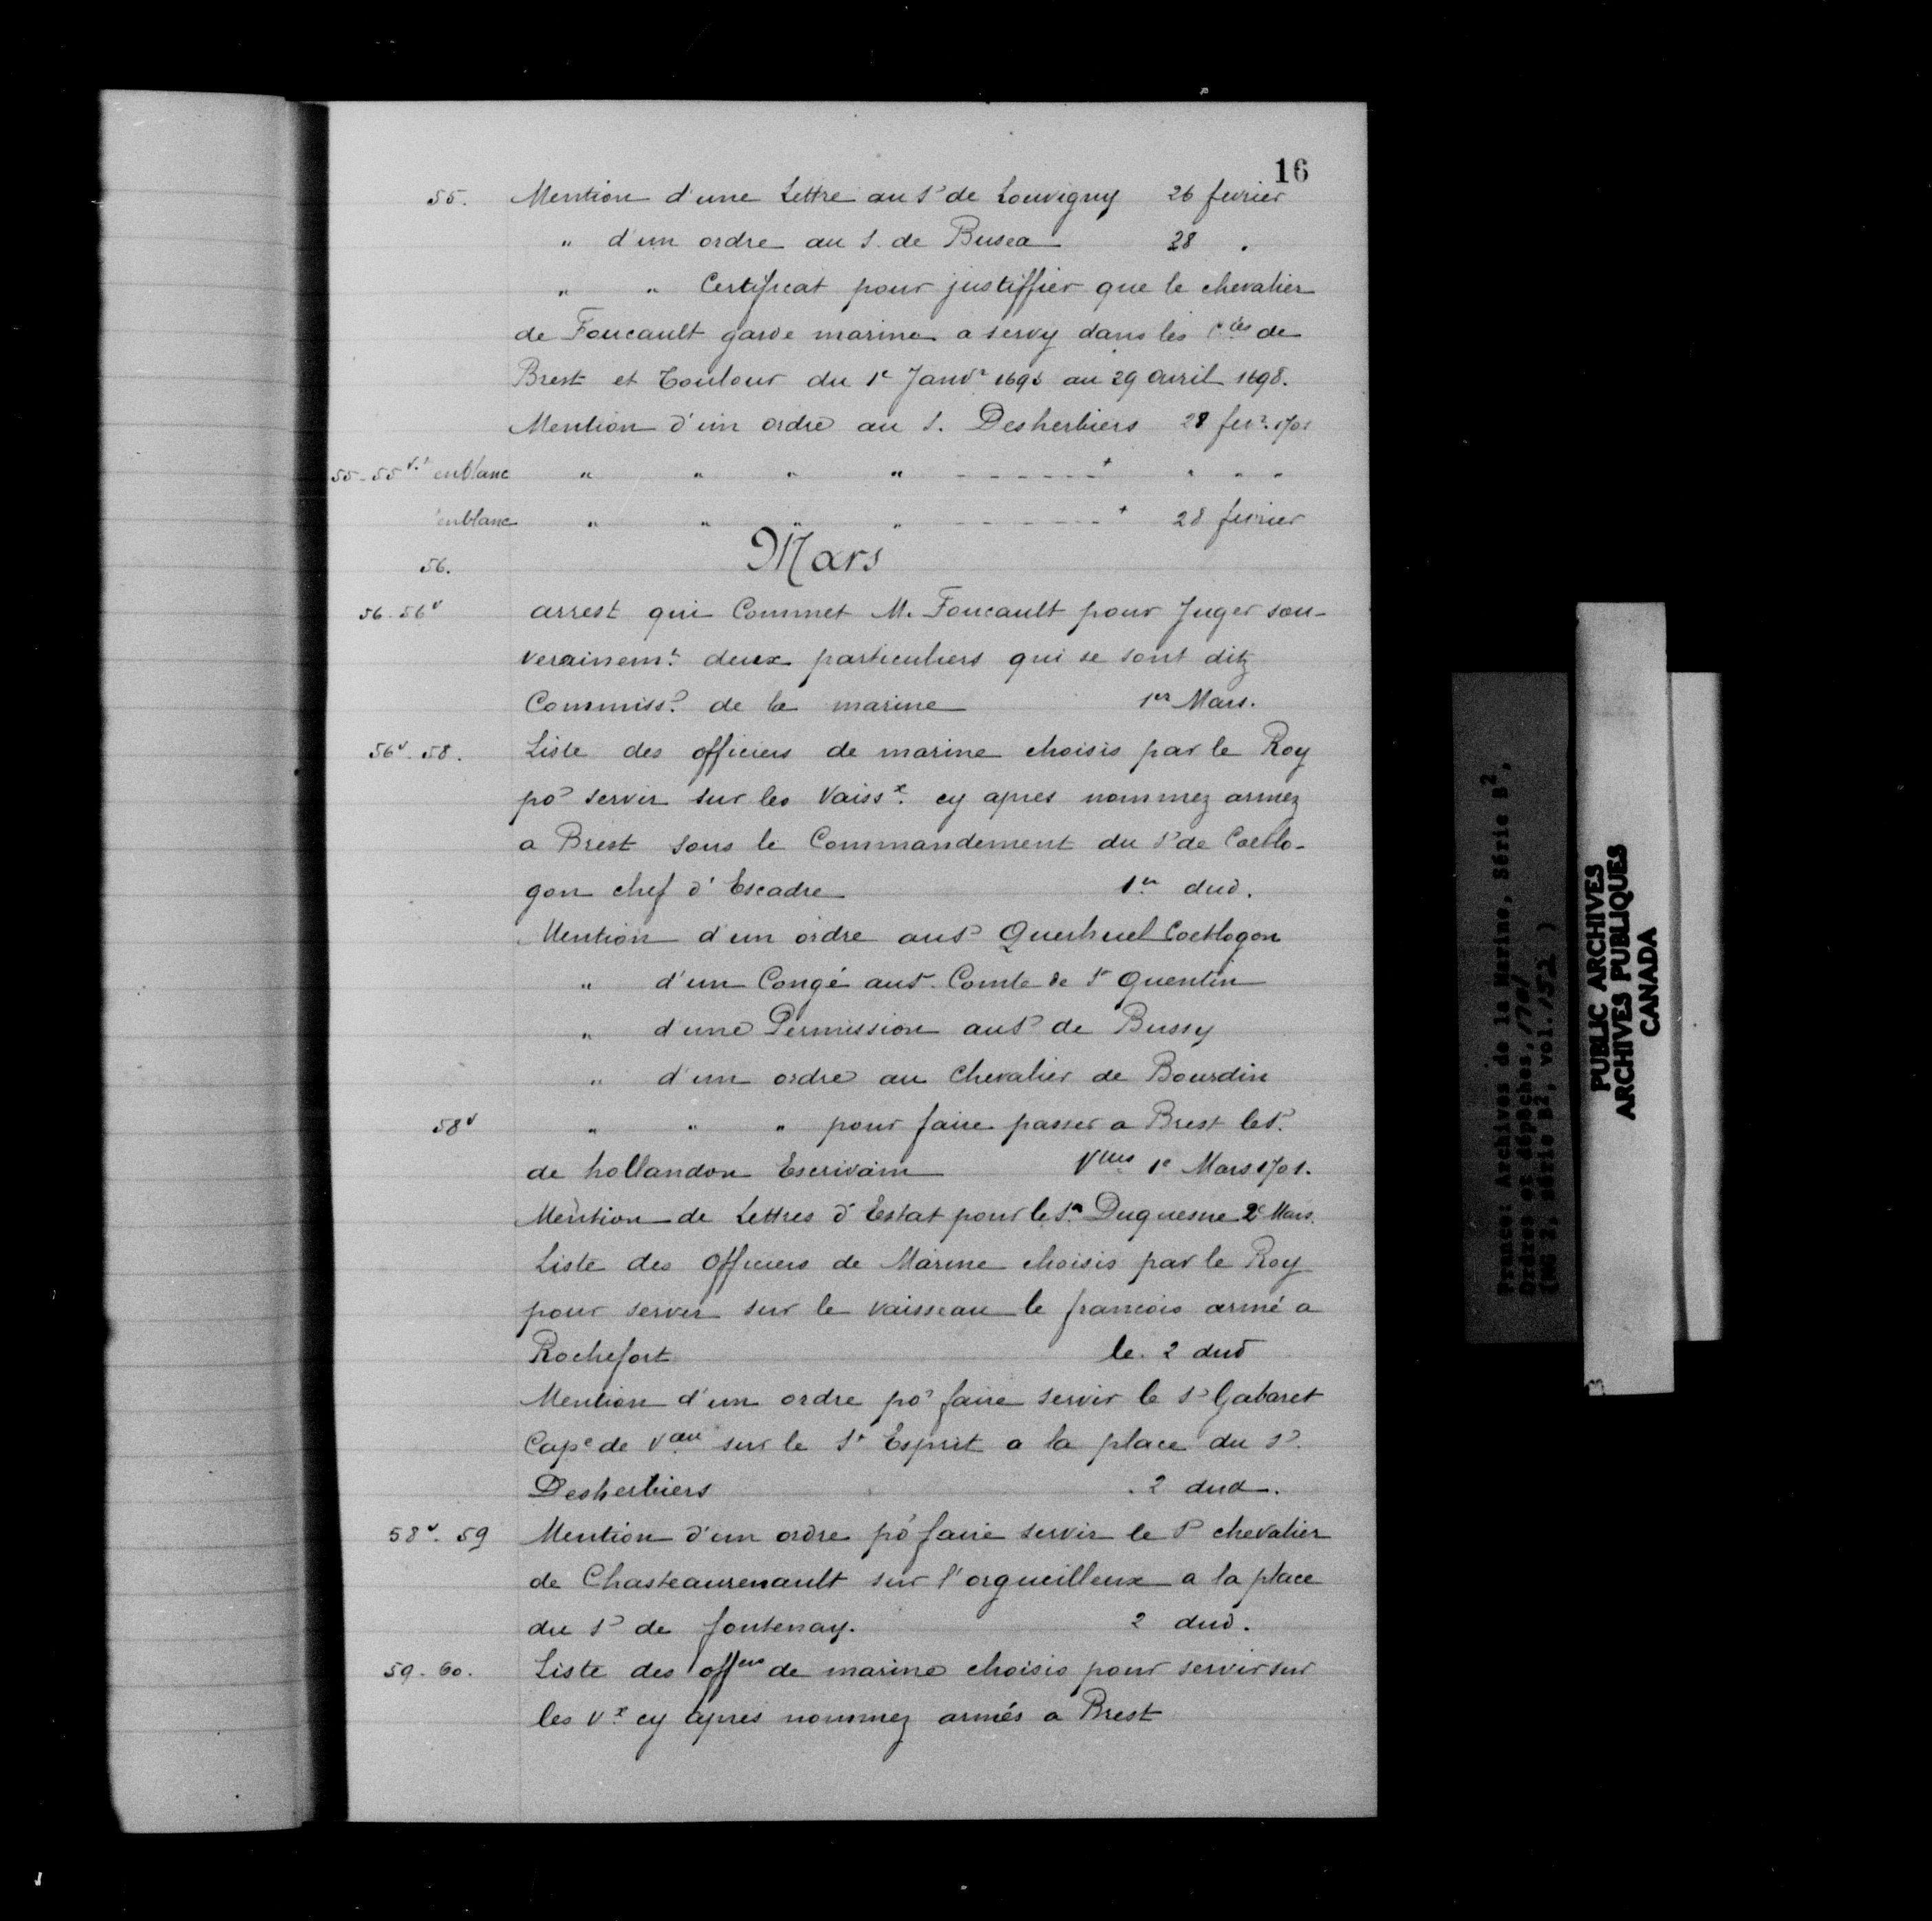 16
55. Mention d'une Lettre au Sr de Louvigny 26 fevrier
" d'un ordre au S. de Busca 28 "
" " Certificat pour justiffier que le chevalier
de Foucault garde marine a servy dans les Cies de
Brest et Toulour du 1e Janvr 1695 au 29 avril 1698.
Mention d'un ordre au S. Desherbiers 28 fevr. 1701
55-55 v.t enblanc " " " " ------+ " " "
enblanc " " " " ------+ 28 fevrier
56. Mars
56. 56v arrest qui Commet M. Foucault pour Juger sou-
verainemt. deux particuliers qui se sont ditz
Commissr. de la marine 1er Mars.
56v. 58. Liste des officiers de marine choisis par le Roy
por servir sur les Vaissx. cy apres nommez armez
a Brest sous le Commandement du Sr de Coetlo-
gon chef d'Escadre 1er dud.
Mention d'un ordre au Sr Querhuel Coetlogon
" d'un Congé au S. Comte de St Quentin
" d'une Permission au Sr de Bussy
" d'un ordre au Chevalier de Bourdin
58v " " " pour faire passer a Brest le Sr.
de hollandon Escrivain Vlles 1e Mars 1701.
Mention de Lettres d'Estat pour le Sr. Duquesne 2e Mars.
Liste des Officiers de Marine choisis par le Roy
pour servir sur le vaisseau le francois armé a
Rochefort le 2 dud
Mention d'un ordre por faire servir le Sr Gabaret
Cape de Vau sur le St Esprit a la place du Sr.
Desherbiers . 2 dud.
58v. 59 Mention d'un ordre por faire servir le Sr chevalier
de Chasteaurenault sur l'orgueilleux a la place
du Sr de fontenay. 2 dud.
59. 60. Liste des offers de marine choisis pour servir sur
les Vx cy apres nommez armés a Brest
France: Archives de la Marine, Série B2,
Ordres et dépêches, 1701
(MG 2, Série B2, vol. 152 )
PUBLIC ARCHIVES
ARCHIVES PUBLIQUES
CANADA